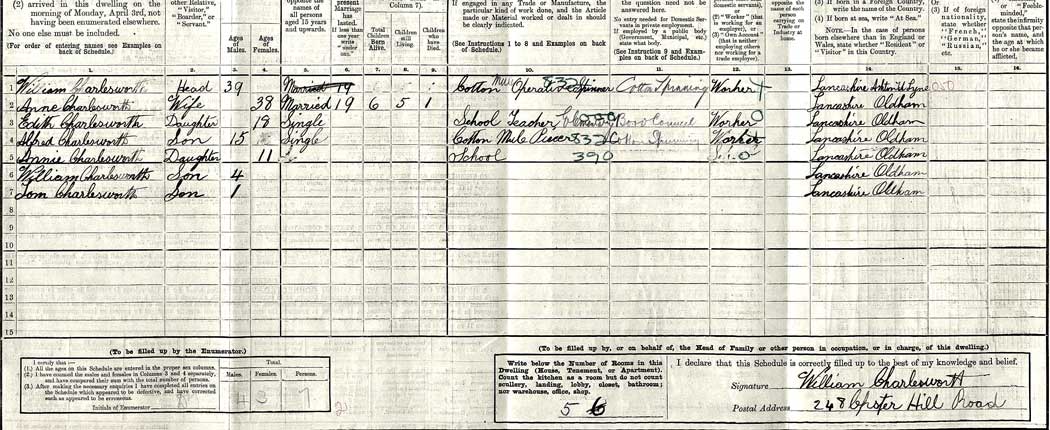 (2) arrived in this dwelling on the
morning of Monday, April 3rd, not
having been enumerated elsewhere.
No one else must be included.
(For order of entering names see Examples on
back of Schedule.)
other Relative,
"Visitor,"
"Boarder," or
"Servant."
Ages
of
Males.
Ages
of
Females.
opposite the
names of
all persons
aged 15 years
and upwards.
present
Marriage
has
lasted.
If less than
one year
write
"under
one."
Column 7).
Total
Children
Born
Alive.
Children
still
Living.
Children
who
have
Died.
engaged in any Trade or Manufacture, the
particular kind of work done, and the Article
made or Material worked or dealt in should
be clearly indicated.
(See Instructions 1 to 8 and Examples on back
of Schedule.)
the question need not be
answered here.
No entry needed for Domestic Ser-
vants in private employment.
If employed by a public body
(Government, Municipal, etc.)
state what body.
(See Instruction 9 and Exam-
ples on back of Schedule.)
domestic servants),
or
(2) "Worker" (that
is working for an
employer), or
(3) "Own Account"
(that is neither
employing others
nor working for a
trade employer).
opposite the
name of each
person
carrying on
Trade or
Industry at
home.
(3) If born in a Foreign Country,
write the name of the Country.
(4) If born at sea, write "At Sea."
NOTE.—In the case of persons
born elsewhere than in England or
Wales, state whether "Resident" or
"Visitor" in this Country.
(3) If of foreign
nationality,
state whether
"French,"
"German,"
"Russian,"
etc.
or "Feeble-
minded,"
state the infirmity
opposite that per-
son's name, and
the age at which
he or she became
afflicted.
1. 2. 3. 4. 5. 6. 7. 8. 9. 10. 11. 12. 13. 14. 15. 16.
1 William Charlesworth Head 39 Married 19 Cotton Mill Operative Spinner 832 Cotton Spinning Worker Lancashire 050
2 Anne Charlesworth Wife 38 Married 19 6 5 1 Lancashire Oldham
3 Edith Charlesworth Daughter 18 Single School Teacher Boro Council Worker Lancashire Oldham
4 Alfred Charlesworth Son 15 Single Cotton Mule Piecer 832 Cotton Spinning Worker Lancashire Oldham
5 Annie Charlesworth Daughter 11 School 390 Lancashire Oldham
6 William Charlesworth Son 4 Lancashire Oldham
7 Tom Charlesworth Son 1 Lancashire Oldham
8
9
10
11
12
13
14
15
(To be filled up by the Enumerator.)
I certify that:—
(1.) All the ages on this Schedule are entered in the proper sex columns.
(2.) I have counted the males and females in Columns 3 and 4 separately,
and have compared their sum with the total number of persons.
(3.) After making the necessary enquiries I have completed all entries on
the Schedule which appeared to be defective, and have corrected
such as appeared to be erroneous.
Initials of Enumerator
Total.
Males. Females. Persons.
4 3 7
2
(To be filled up by, or on behalf of, the Head of Family or other person in occupation, or in charge, of this dwelling.)
Write below the Number of Rooms in this
Dwelling (House, Tenement, or Apartment).
Count the kitchen as a room but do not count
scullery, landing, lobby, closet, bathroom;
nor warehouse, office, shop.
5 6
I declare that this Schedule is correctly filled up to the best of my knowledge and belief.
Signature William Charlesworth
Postal Address 248 Hill Road